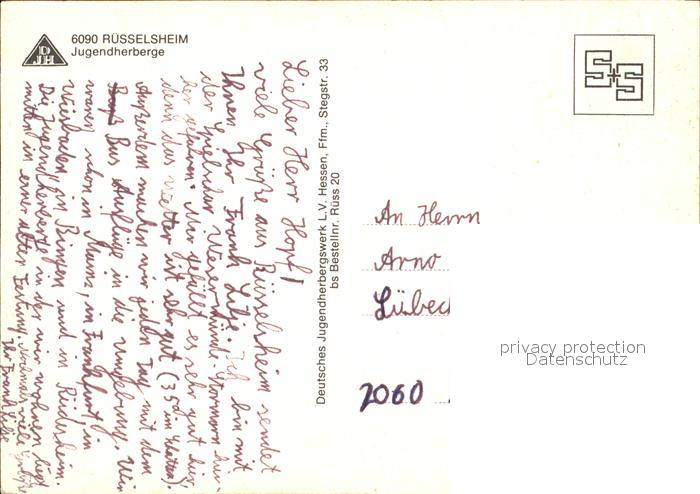 6090 RÜSSELSHEIM
Jugendherberge
DJH
Lieber Herr Hopf!
viele Grüße aus Rüsselsheim sendet
Ihnen Ihr Frank Lilje. Ich bin mit
der Spielschar Weser Stormarn hier-
her gefahren. Mir gefällt es sehr gut hier,
denn das Wetter ist sehr gut (35° im Schatten).
Außerdem machen wir jeden Tag mit dem
Bus Ausflüge in die Umgebung. Wir
waren schon in Mainz, in Frankfurt, in
Wiesbaden, in Bingen und in Rüdesheim.
Die Jugendherberge in der wir wohnen liegt
mitten in einer alten Festung. Nochmals viele Grüße
Ihr Frank Lilje
Deutsches Jugendherbergswerk L.V. Hessen, Ffm., Stegstr. 33
bs Bestellnr. Rüss 20
S+S
An Herrn
Arno
Lübec
2060
privacy protection
Datenschutz